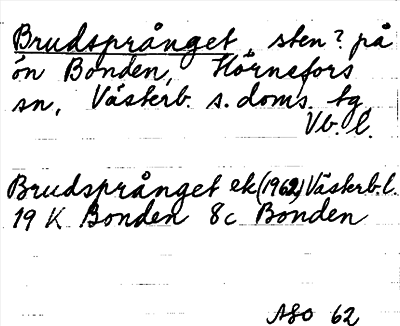 Brudsprånget, sten? på
ön Bonden, Hörnefors
sn, Västerb. s. doms. tg,
Vb. l.
Brudsprånget ek (1962) Västerb. l.
19 K Bonden 8c Bonden
ASO 62